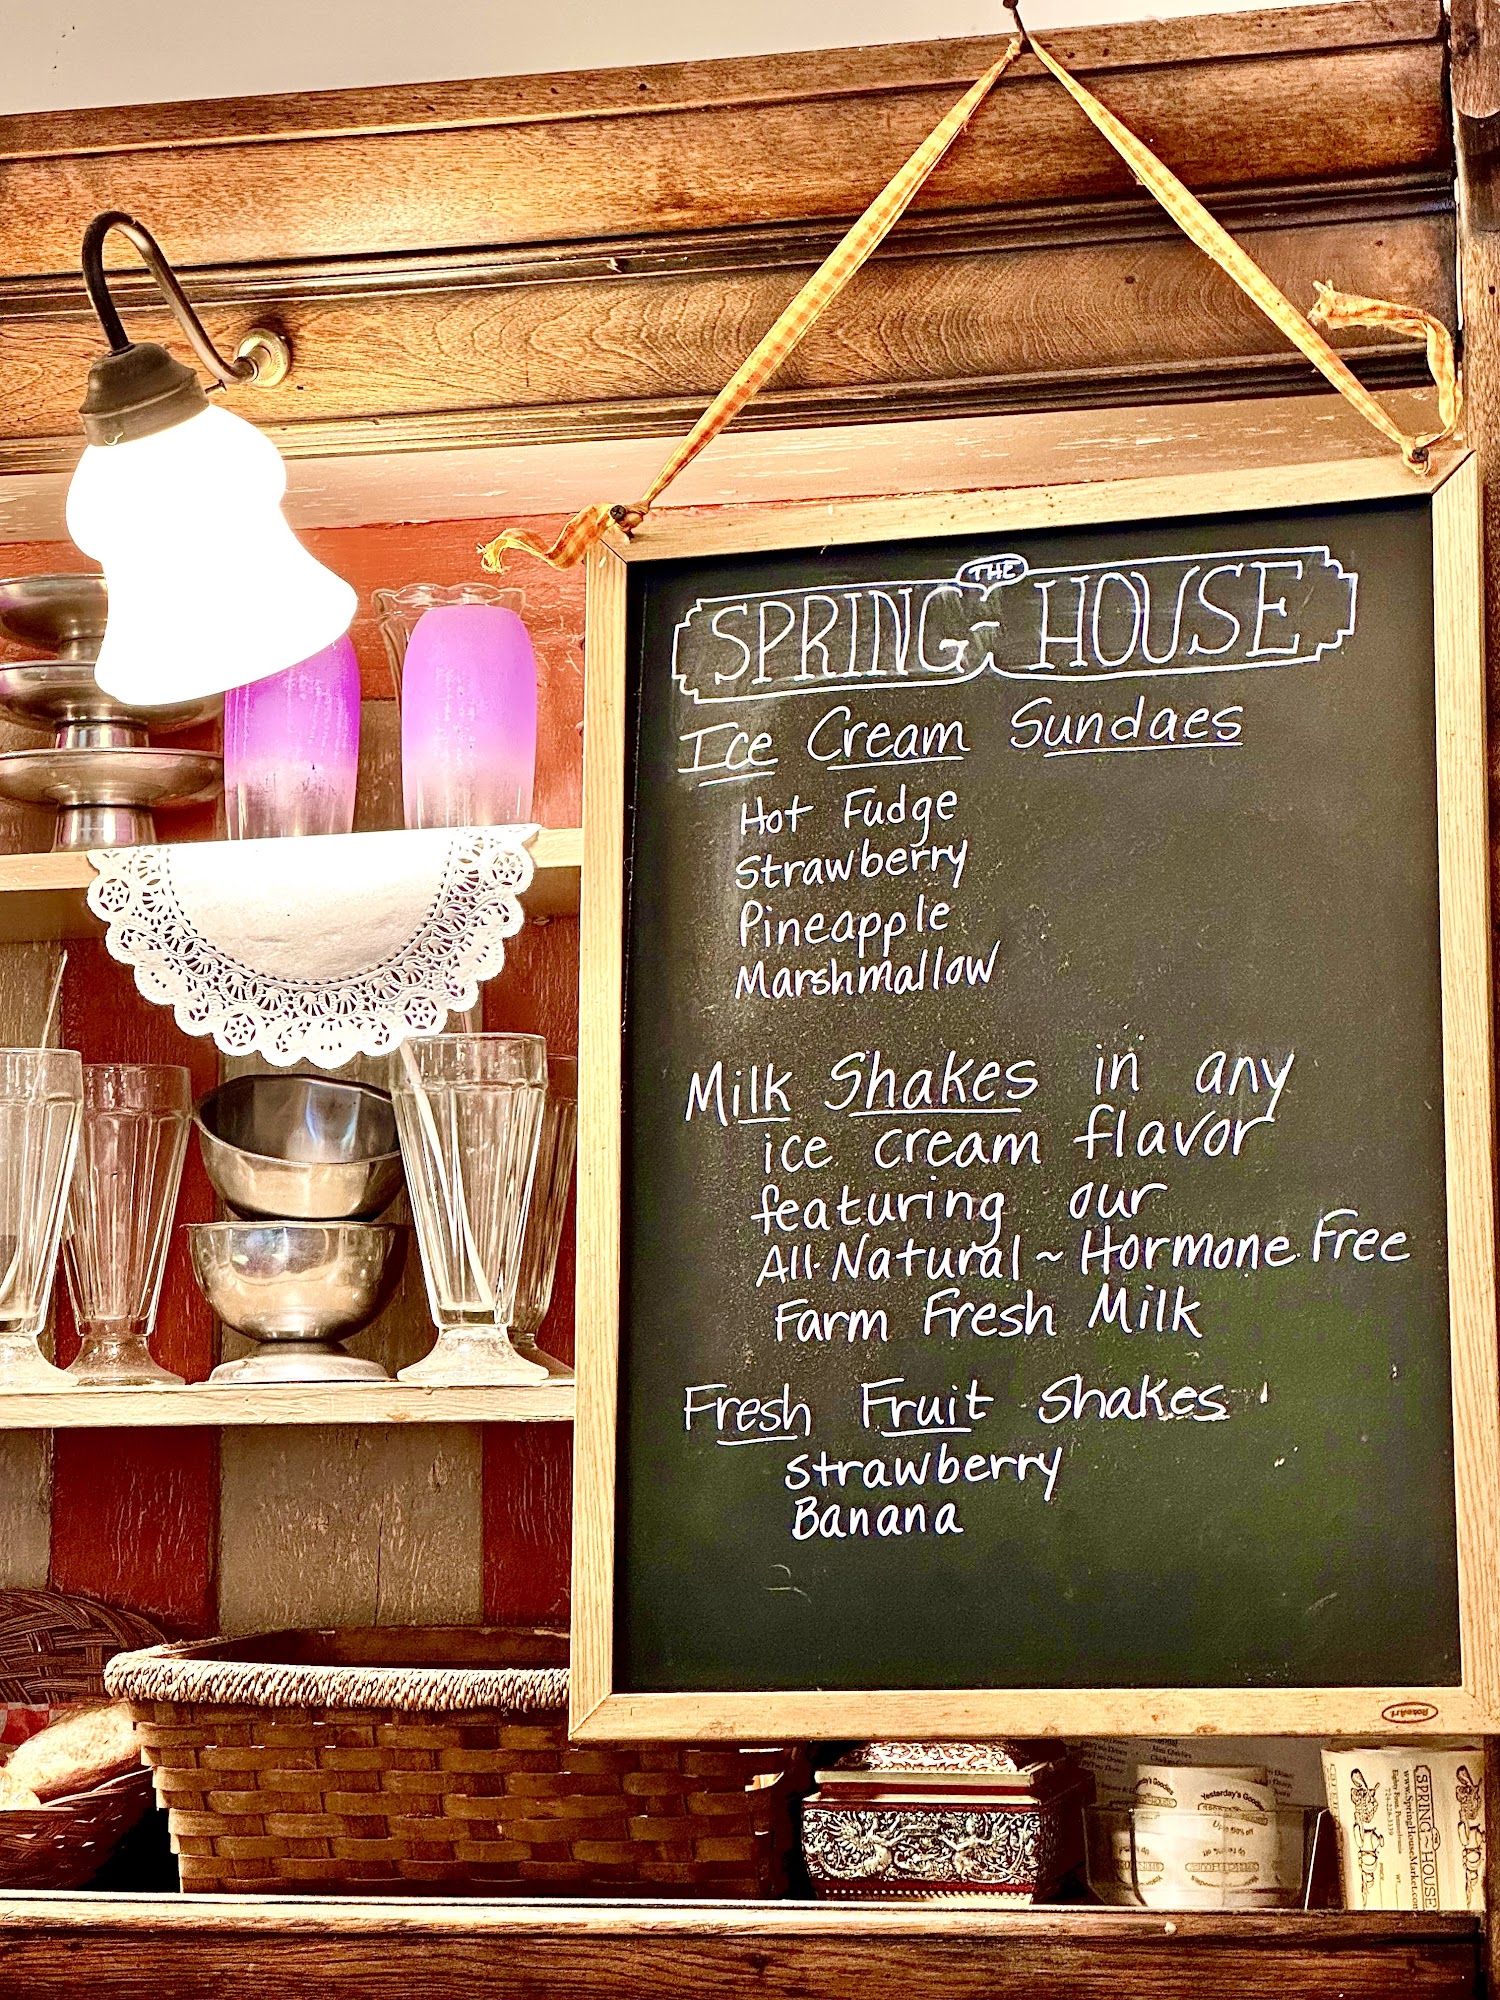 THE
SPRING~HOUSE
Ice Cream Sundaes
Hot Fudge
Strawberry
Pineapple
Marshmallow
Milk Shakes in any
ice cream flavor
featuring our
All-Natural~Hormone Free
Farm Fresh Milk
Fresh Fruit Shakes
Strawberry
Banana
Yesterday's Goodies
SPRING~HOUSE
www.SpringHouseMarket.com